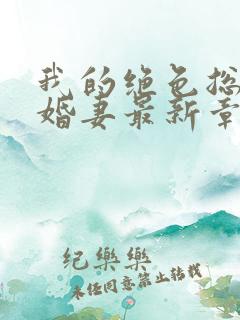 我的绝色总
婚妻最新章
纪乐乐
未经同意禁止转载